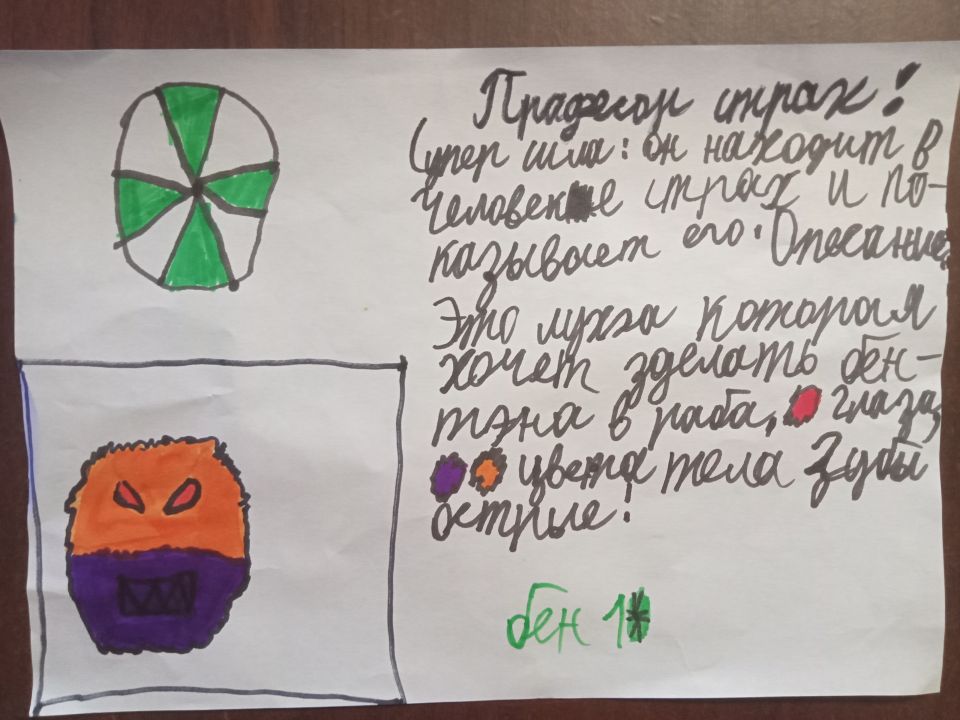 Прафесор страх!
Супер сила: он находит в
человеке страх и по-
казывает его. Опесание:
Это муха которая
хочет зделать бен-
тэна в раба, глаза,
цвета тела Зубы
острые!
бен 10